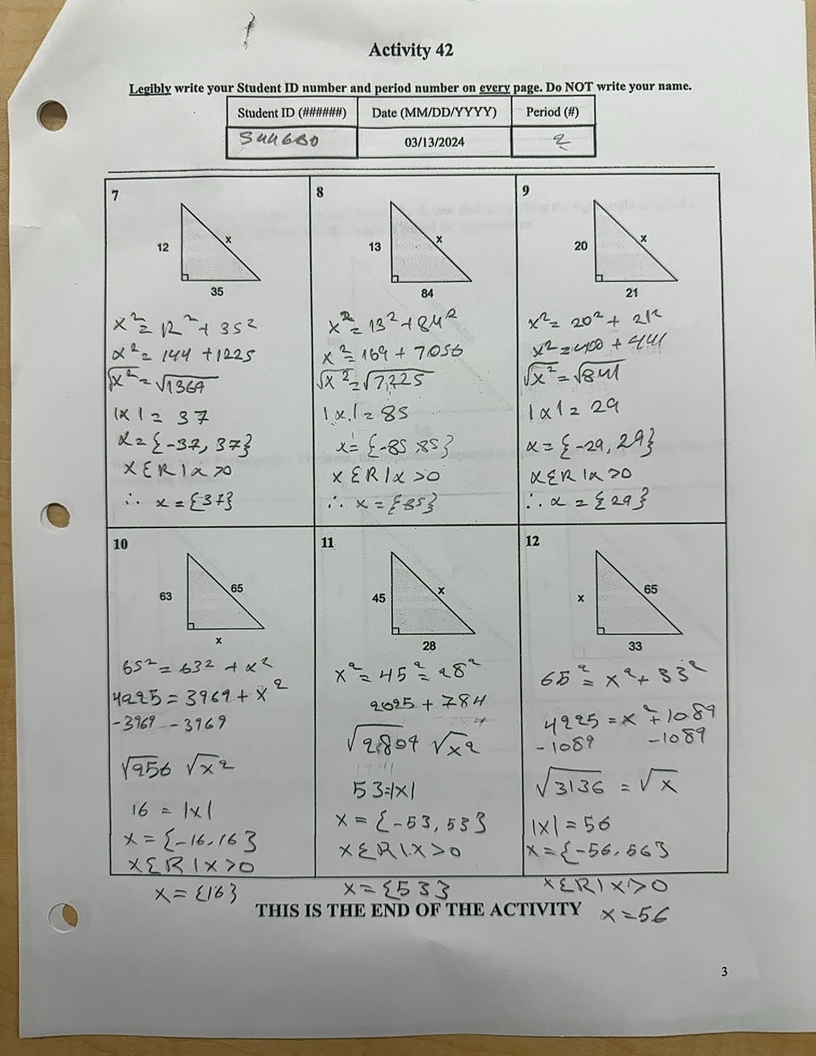 Activity 42
Legibly write your Student ID number and period number on every page. Do NOT write your name.
Student ID (######) Date (MM/DD/YYYY) Period (#)
03/13/2024 2
7
12
x
35
x² = 12² + 35²
x² = 144 + 1225
√x² = √1369
|x| = 37
x = {-37, 37}
x ε R | x > 0
∴ x = {37}
8
13
x
84
x² = 13² + 84²
x² = 169 + 7056
√x² = √7,225
|x| = 85
x = {-85, 85}
x ε R | x > 0
∴ x = {85}
9
20
x
21
x² = 20² + 21²
x² = 400 + 441
√x² = √841
|x| = 29
x = {-29, 29}
x ε R | x > 0
∴ x = {29}
10
63
65
x
65² = 63² + x²
4225 = 3969 + x²
-3969 -3969
√256 √x²
16 = |x|
x = {-16, 16}
x ε R | x > 0
x = {16}
11
45
x
28
x² = 45² = 28²
2025 + 784
√2809 √x²
53 = |x|
x = {-53, 53}
x ε R | x > 0
x = {53}
12
x
65
33
65² = x² + 33²
4225 = x² + 1089
-1089 -1089
√3136 = √x
|x| = 56
x = {-56, 56}
x ε R | x > 0
x = 56
THIS IS THE END OF THE ACTIVITY
3